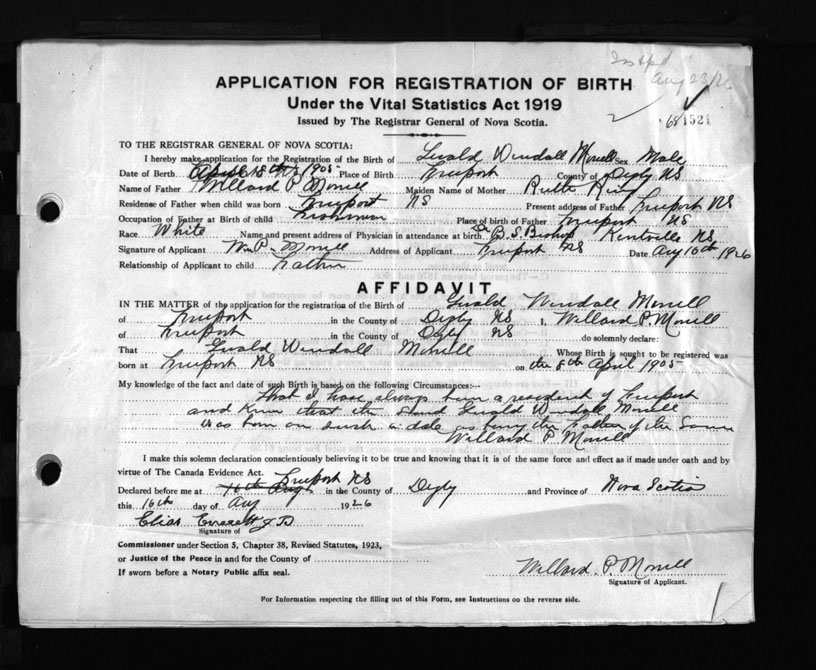 Aug 23/26
APPLICATION FOR REGISTRATION OF BIRTH
Under the Vital Statistics Act 1919
Issued by The Registrar General of Nova Scotia.
1521
TO THE REGISTRAR GENERAL OF NOVA SCOTIA:
I hereby make application for the Registration of the Birth of Morrell Sex Male
Date of Birth April 8th 1905 Place of Birth Freeport County of Digby NS
Name of Father Willard P Morrell Maiden Name of Mother Ruth
Residence of Father when child was born Freeport NS Present address of Father Freeport NS
Occupation of Father at Birth of child Fisherman Place of birth of Father Freeport NS
Race White Name and present address of Physician in attendance at birth Dr B. S. Bishop Kentville NS
Signature of Applicant Wm P. Morrell Address of Applicant Freeport NS Date Aug 16th 1926
Relationship of Applicant to child Father
AFFIDAVIT
IN THE MATTER of the application for the registration of the Birth of Morrell
of Freeport in the County of Digby NS I, Willard P. Morrell
of Freeport in the County of Digby NS do solemnly declare:
That Morrell Whose Birth is sought to be registered was
born at Freeport NS on the 8th April 1905
My knowledge of the fact and date of such Birth is based on the following Circumstances:—
That I have always been a resident of Freeport
and know that the Morrell
was born on such a date as being the Father of the Same
Willard P Morrell
I make this solemn declaration conscientiously believing it to be true and knowing that it is of the same force and effect as if made under oath and by
virtue of The Canada Evidence Act. Freeport NS
Declared before me at 16th Aug in the County of Digby and Province of Nova Scotia
this 16th day of Aug 1926
Elias J P
Signature of
Commissioner under Section 5, Chapter 38, Revised Statutes, 1923,
or Justice of the Peace in and for the County of
If sworn before a Notary Public affix seal.
Willard. P. Morrell
Signature of Applicant.
For Information respecting the filling out of this Form, see Instructions on the reverse side.